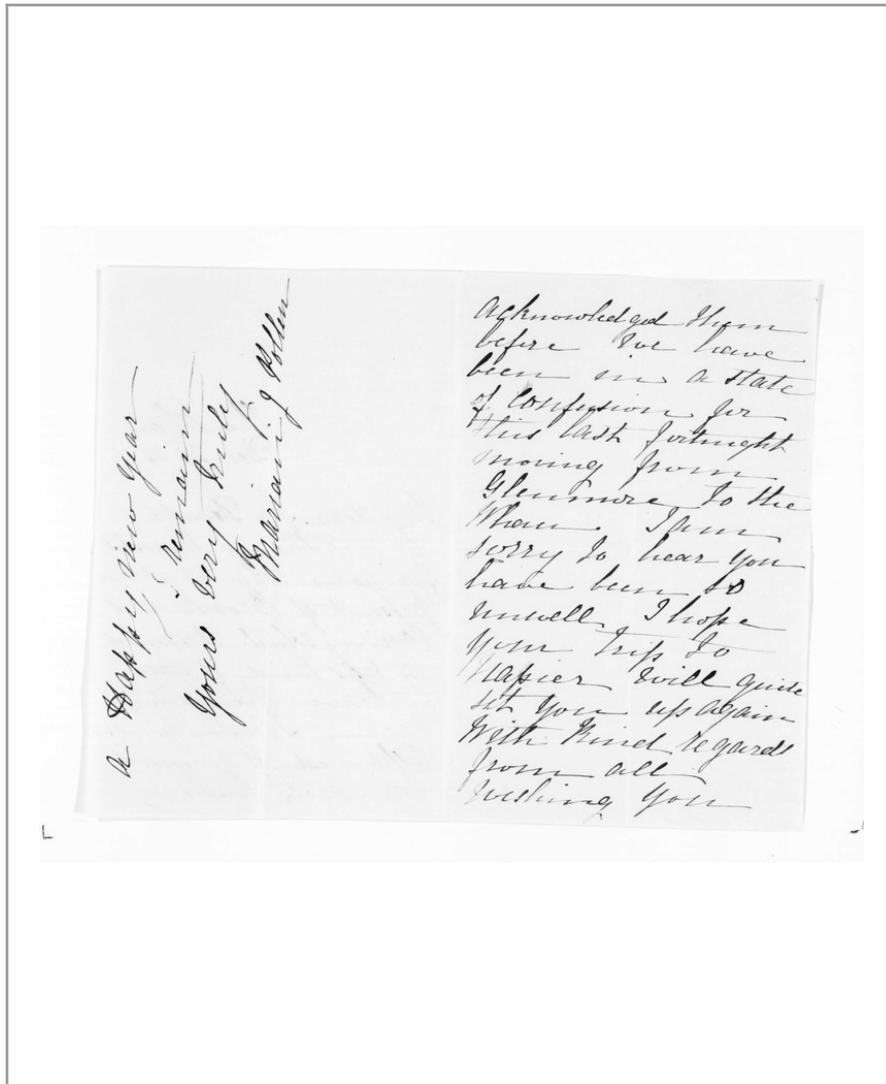 acknowledged them
before We have
been in a state
of confusion for
this last fortnight
moving from
Glenmore to the
I am
sorry to hear you
have been so
unwell. I hope
your trip to
Napier will quite
set you up again
With Kind regards
from all
Wishing You
a Happy New Year
I remain
Yours very truly
Marian J Pollen